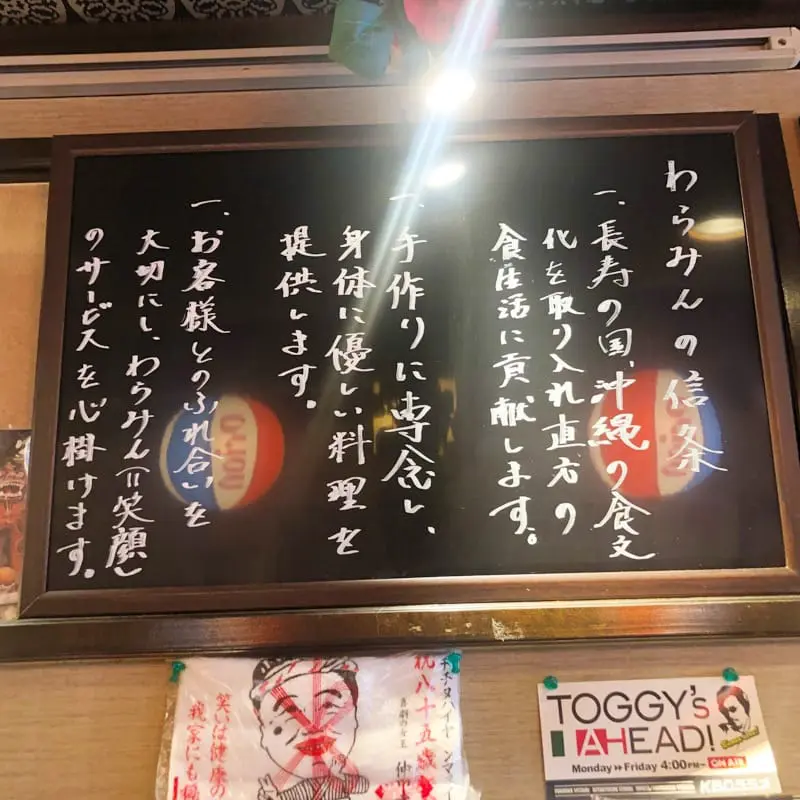 わらみんの信条
一、長寿の国、沖縄の食文
化を取り入れ直方の
食生活に貢献します。
一、手作りに専念し、
身体に優しい料理を
提供します。
一、お客様とのふれ合いを
大切にし、わらみん(=笑顔)
のサービスを心掛けます。
祝八十五歳
喜劇の女王 仲
笑いは健康の
我家にも
TOGGY's
AHEAD!
Monday Friday 4:00PM~ ON AIR